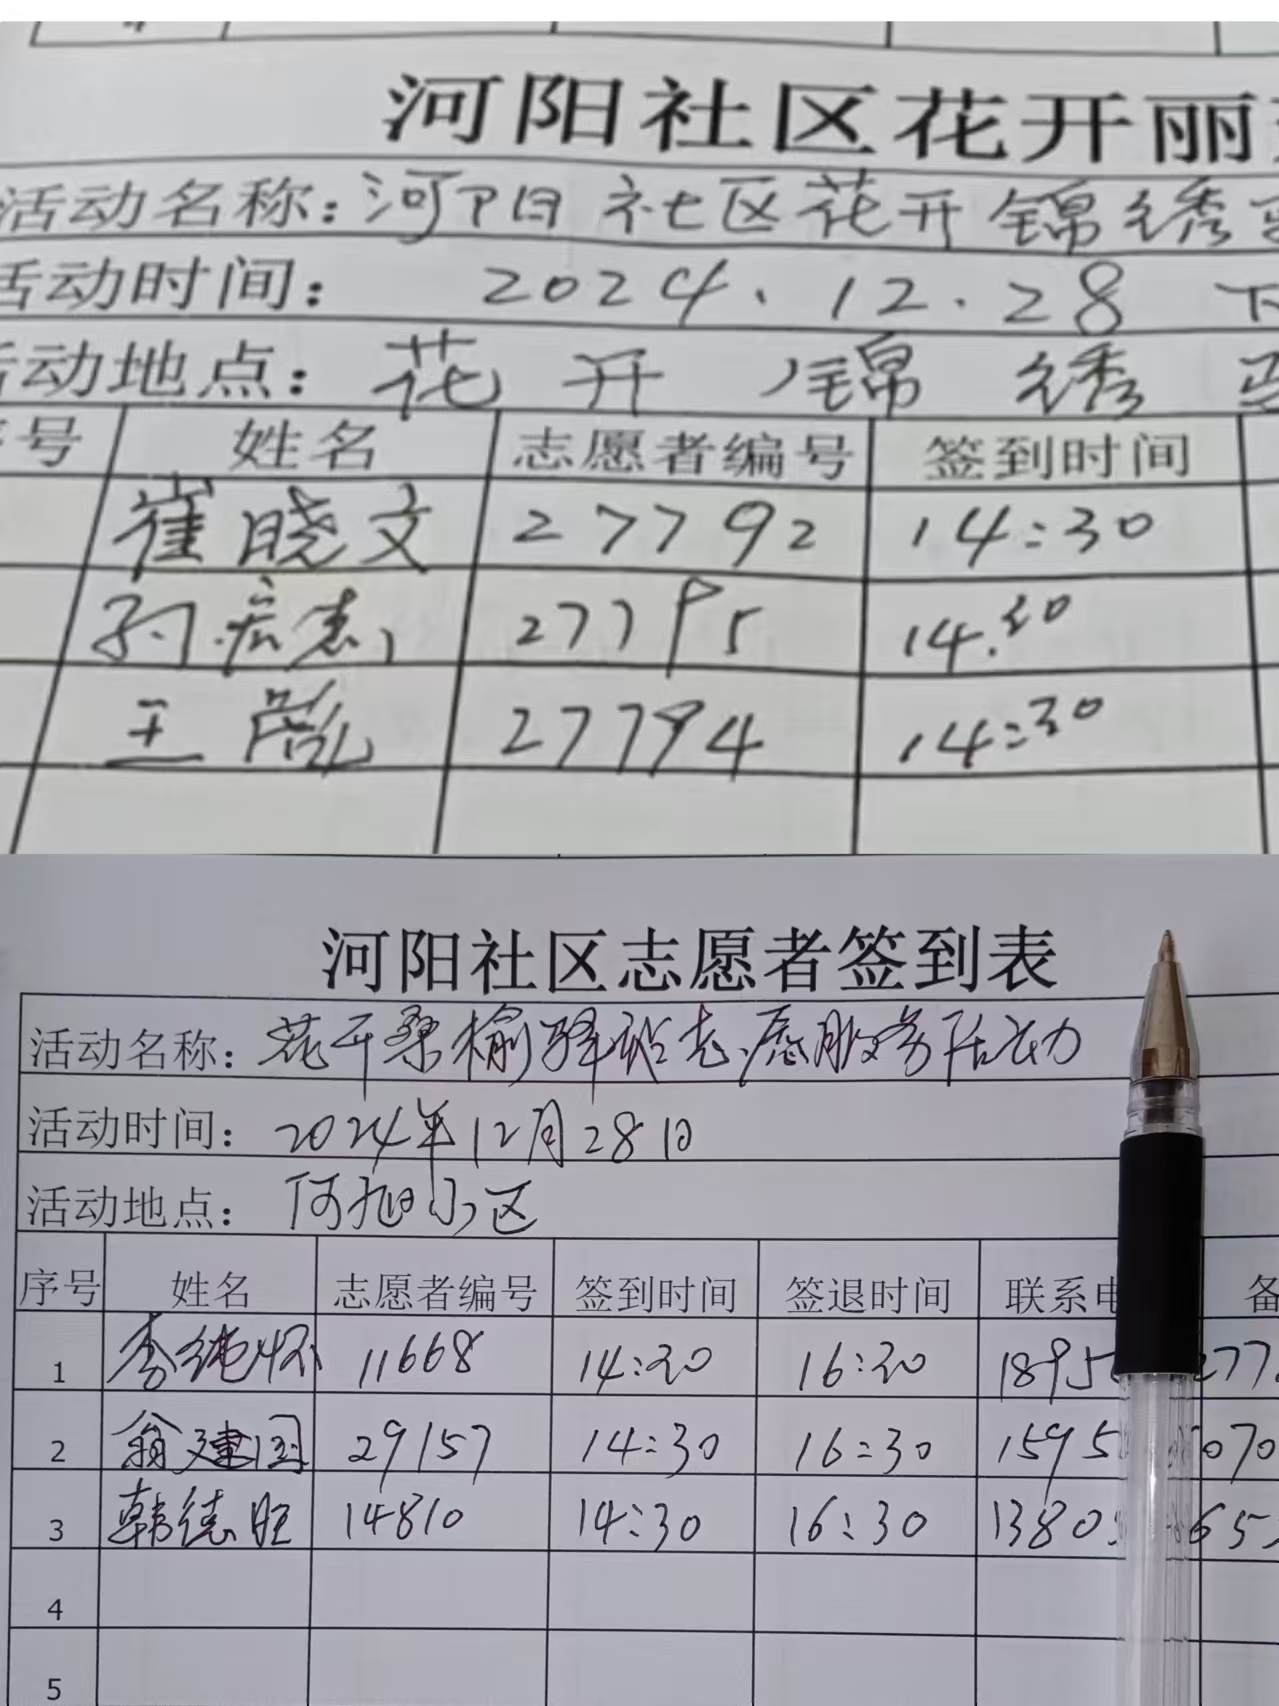 河阳社区花开丽
活动名称：河阳社区花开锦绣
活动时间： 2024.12.28 下
活动地点：花开锦绣
号 姓名 志愿者编号 签到时间
崔晓文 27792 14:30
27795 14:30
王 27794 14:30
河阳社区志愿者签到表
活动名称：花开桑榆驿站志愿服务活动
活动时间：2024年12月28日
活动地点：河阳小区
序号 姓名 志愿者编号 签到时间 签退时间 联系电 备
1 李纯怀 11668 14:30 16:30 1895 277
2 翁建国 29157 14:30 16:30 1595 070
3 韩德旺 14810 14:30 16:30 1380 65
4
5